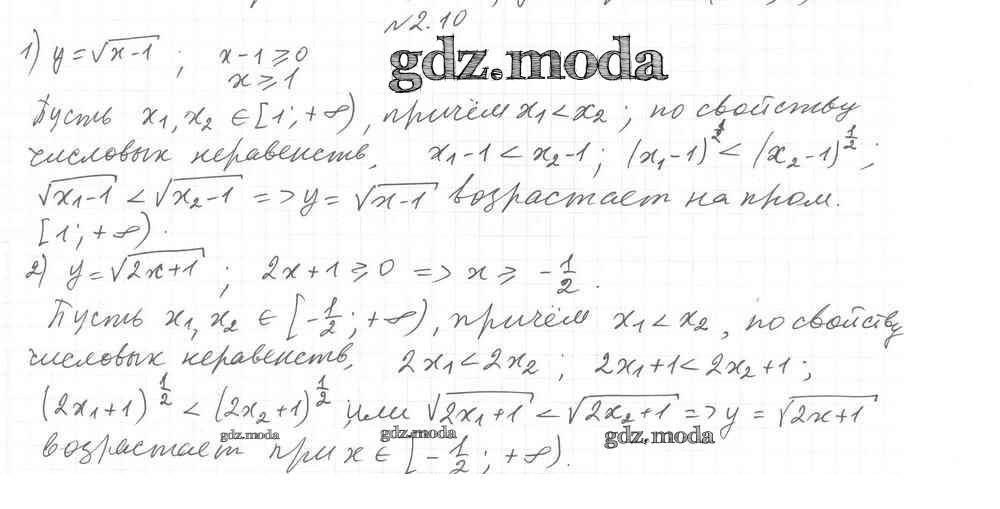 №2.10
1) y=√x-1 ; x-1≥0
gdz.moda
x≥1
Пусть x₁, x₂ ∈ [1; +∞), причём x₁<x₂ ; по свойству
числовых неравенств, x₁-1 < x₂-1 ; (x₁-1)^½ < (x₂-1)^½ ;
√x₁-1 < √x₂-1 => y = √x-1 возрастает на пром.
[1; +∞).
2) y=√2x+1 ; 2x+1≥0 => x ≥ -½.
Пусть x₁, x₂ ∈ [-½; +∞), причём x₁<x₂, по свойству
числовых неравенств, 2x₁<2x₂ ; 2x₁+1<2x₂+1 ;
(2x₁+1)^½ < (2x₂+1)^½, или √2x₁+1 < √2x₂+1 => y = √2x+1
gdz.moda gdz.moda gdz.moda
возрастает при x ∈ [-½; +∞).